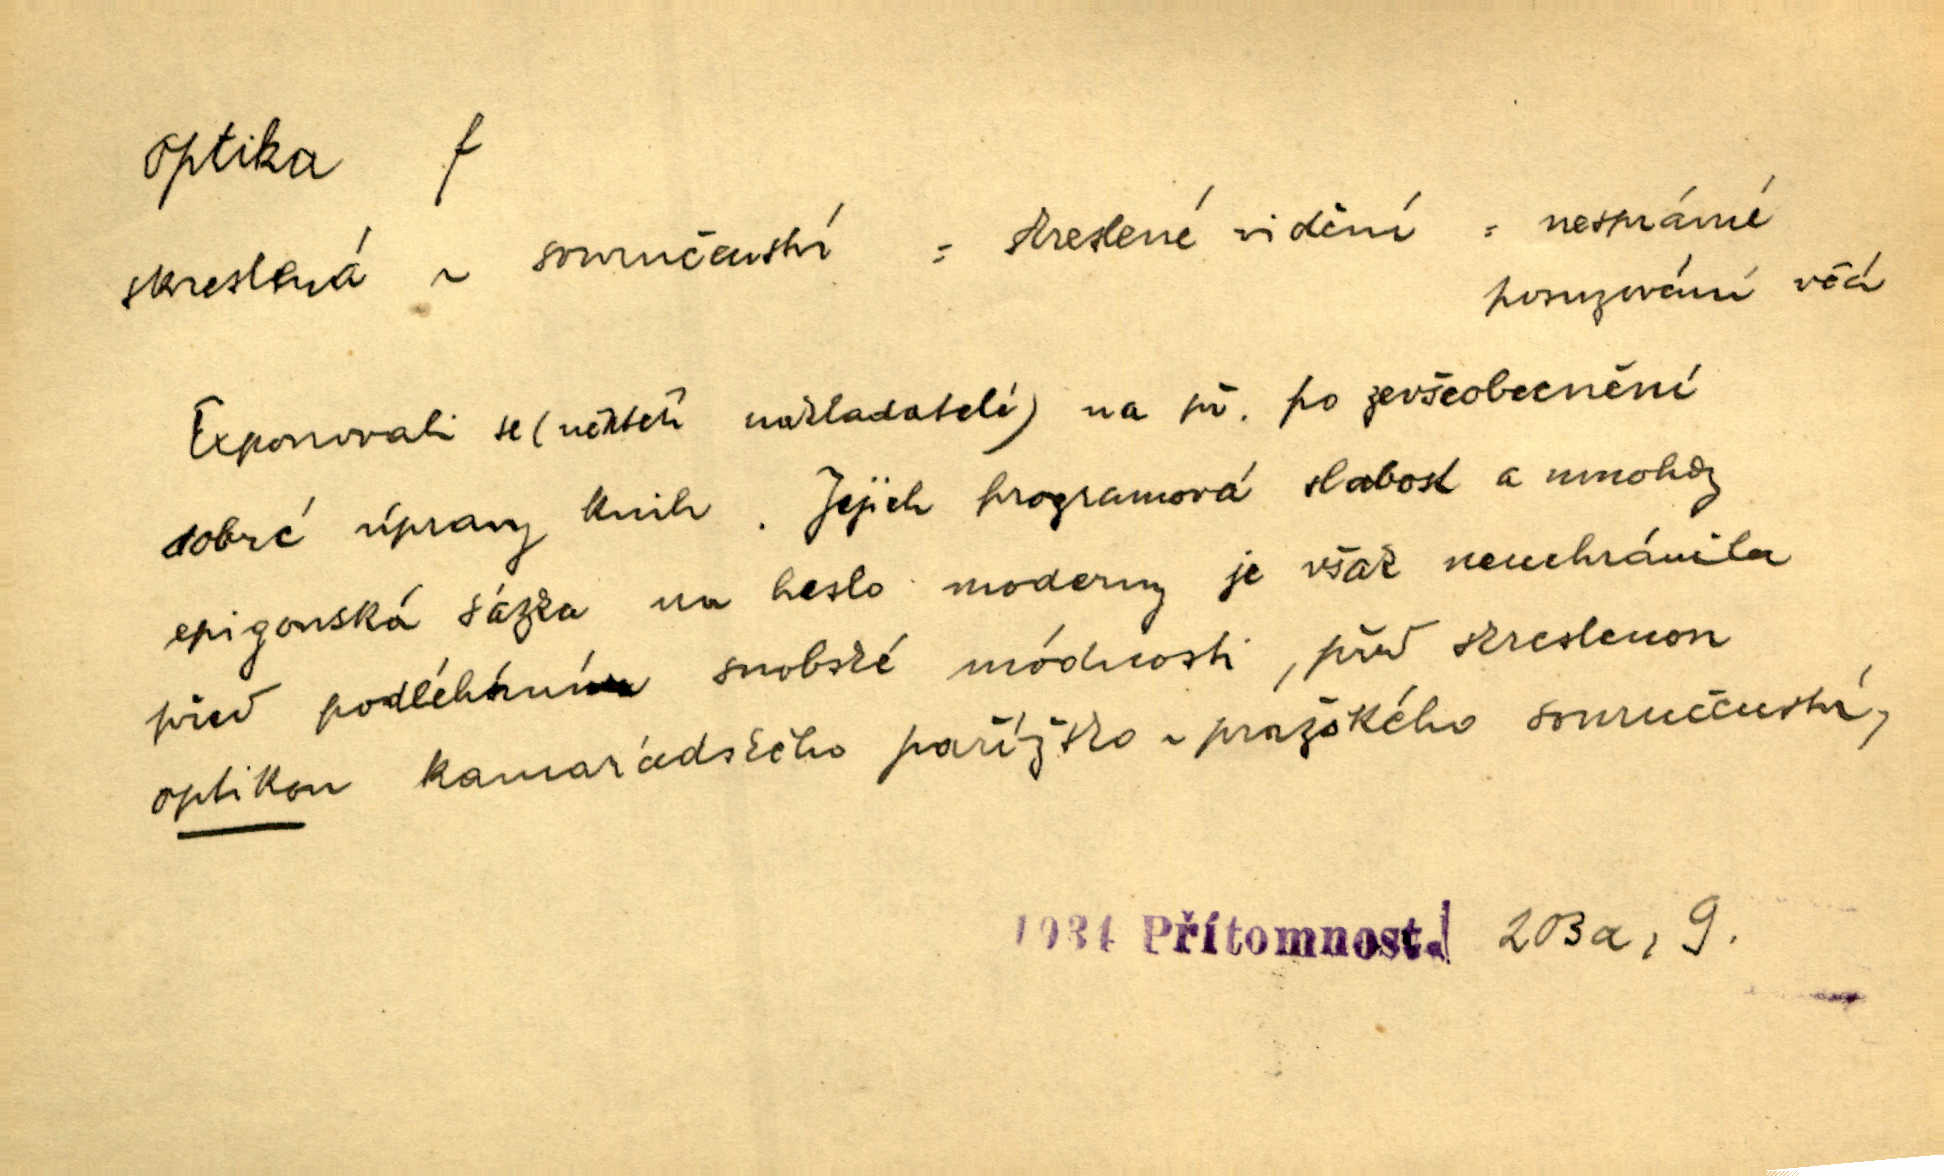 optika f
skreslená ~ souručenství = skreslené vidění = nesprávné
posuzování věcí
Exponovali se (někteří nakladatelé) na př. po zevšeobecnění
dobré úpravy knih. Jejich programová slabost a mnohdy
epigonská sázka na heslo moderny je však neuchránila
před podléhání snobské módnosti, před skreslenou
optikou kamarádského pařížsko-pražského souručenství,
1934 Přítomnost. 203a, 9.